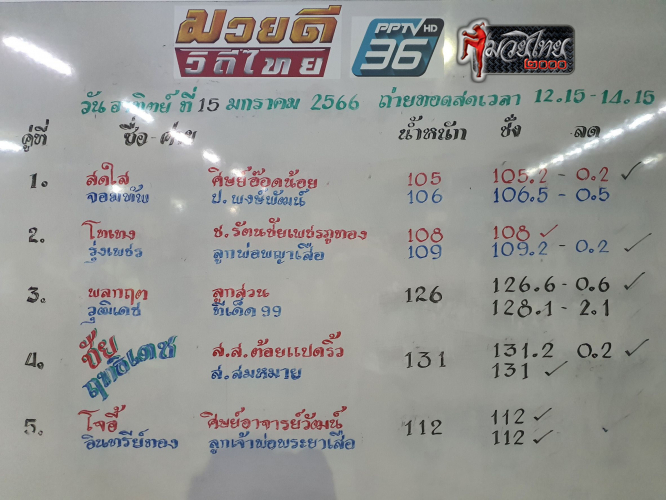 มวยดี
วิถีไทย
PPTV HD
36
มวยไทย
๒๐๐๐
วันอาทิตย์ ที่ 15 มกราคม 2566 ถ่ายทอดสดเวลา 12.15-14.15
คู่ที่ ชื่อ-ค่าย น้ำหนัก ชั่ง ลด
1. สดใส ศิษย์อ๊อดน้อย 105 105.2 - 0.2 ✓
จอมทัพ ป.พงษ์พัฒน์ 106 106.5 - 0.5
2. โทเทง ช.รัตนชัยเพชรภูทอง 108 108 ✓
รุ่งเพชร ลูกพ่อพญาเสือ 109 109.2 - 0.2 ✓
3. พลกฤต ลูกสวน 126 126.6 - 0.6 ✓
วุฒิเดช ทีเด็ด 99 128.1 - 2.1
4. ชัย ส.ส.ต้อยแปดริ้ว 131 131.2 0.2 ✓
ฤทธิเดช ส.สมหมาย 131 ✓
5. โจอี้ ศิษย์อาจารย์วัฒน์ 112 112 ✓
อินทรีย์ทอง ลูกเจ้าพ่อพระยาเสือ 112 ✓